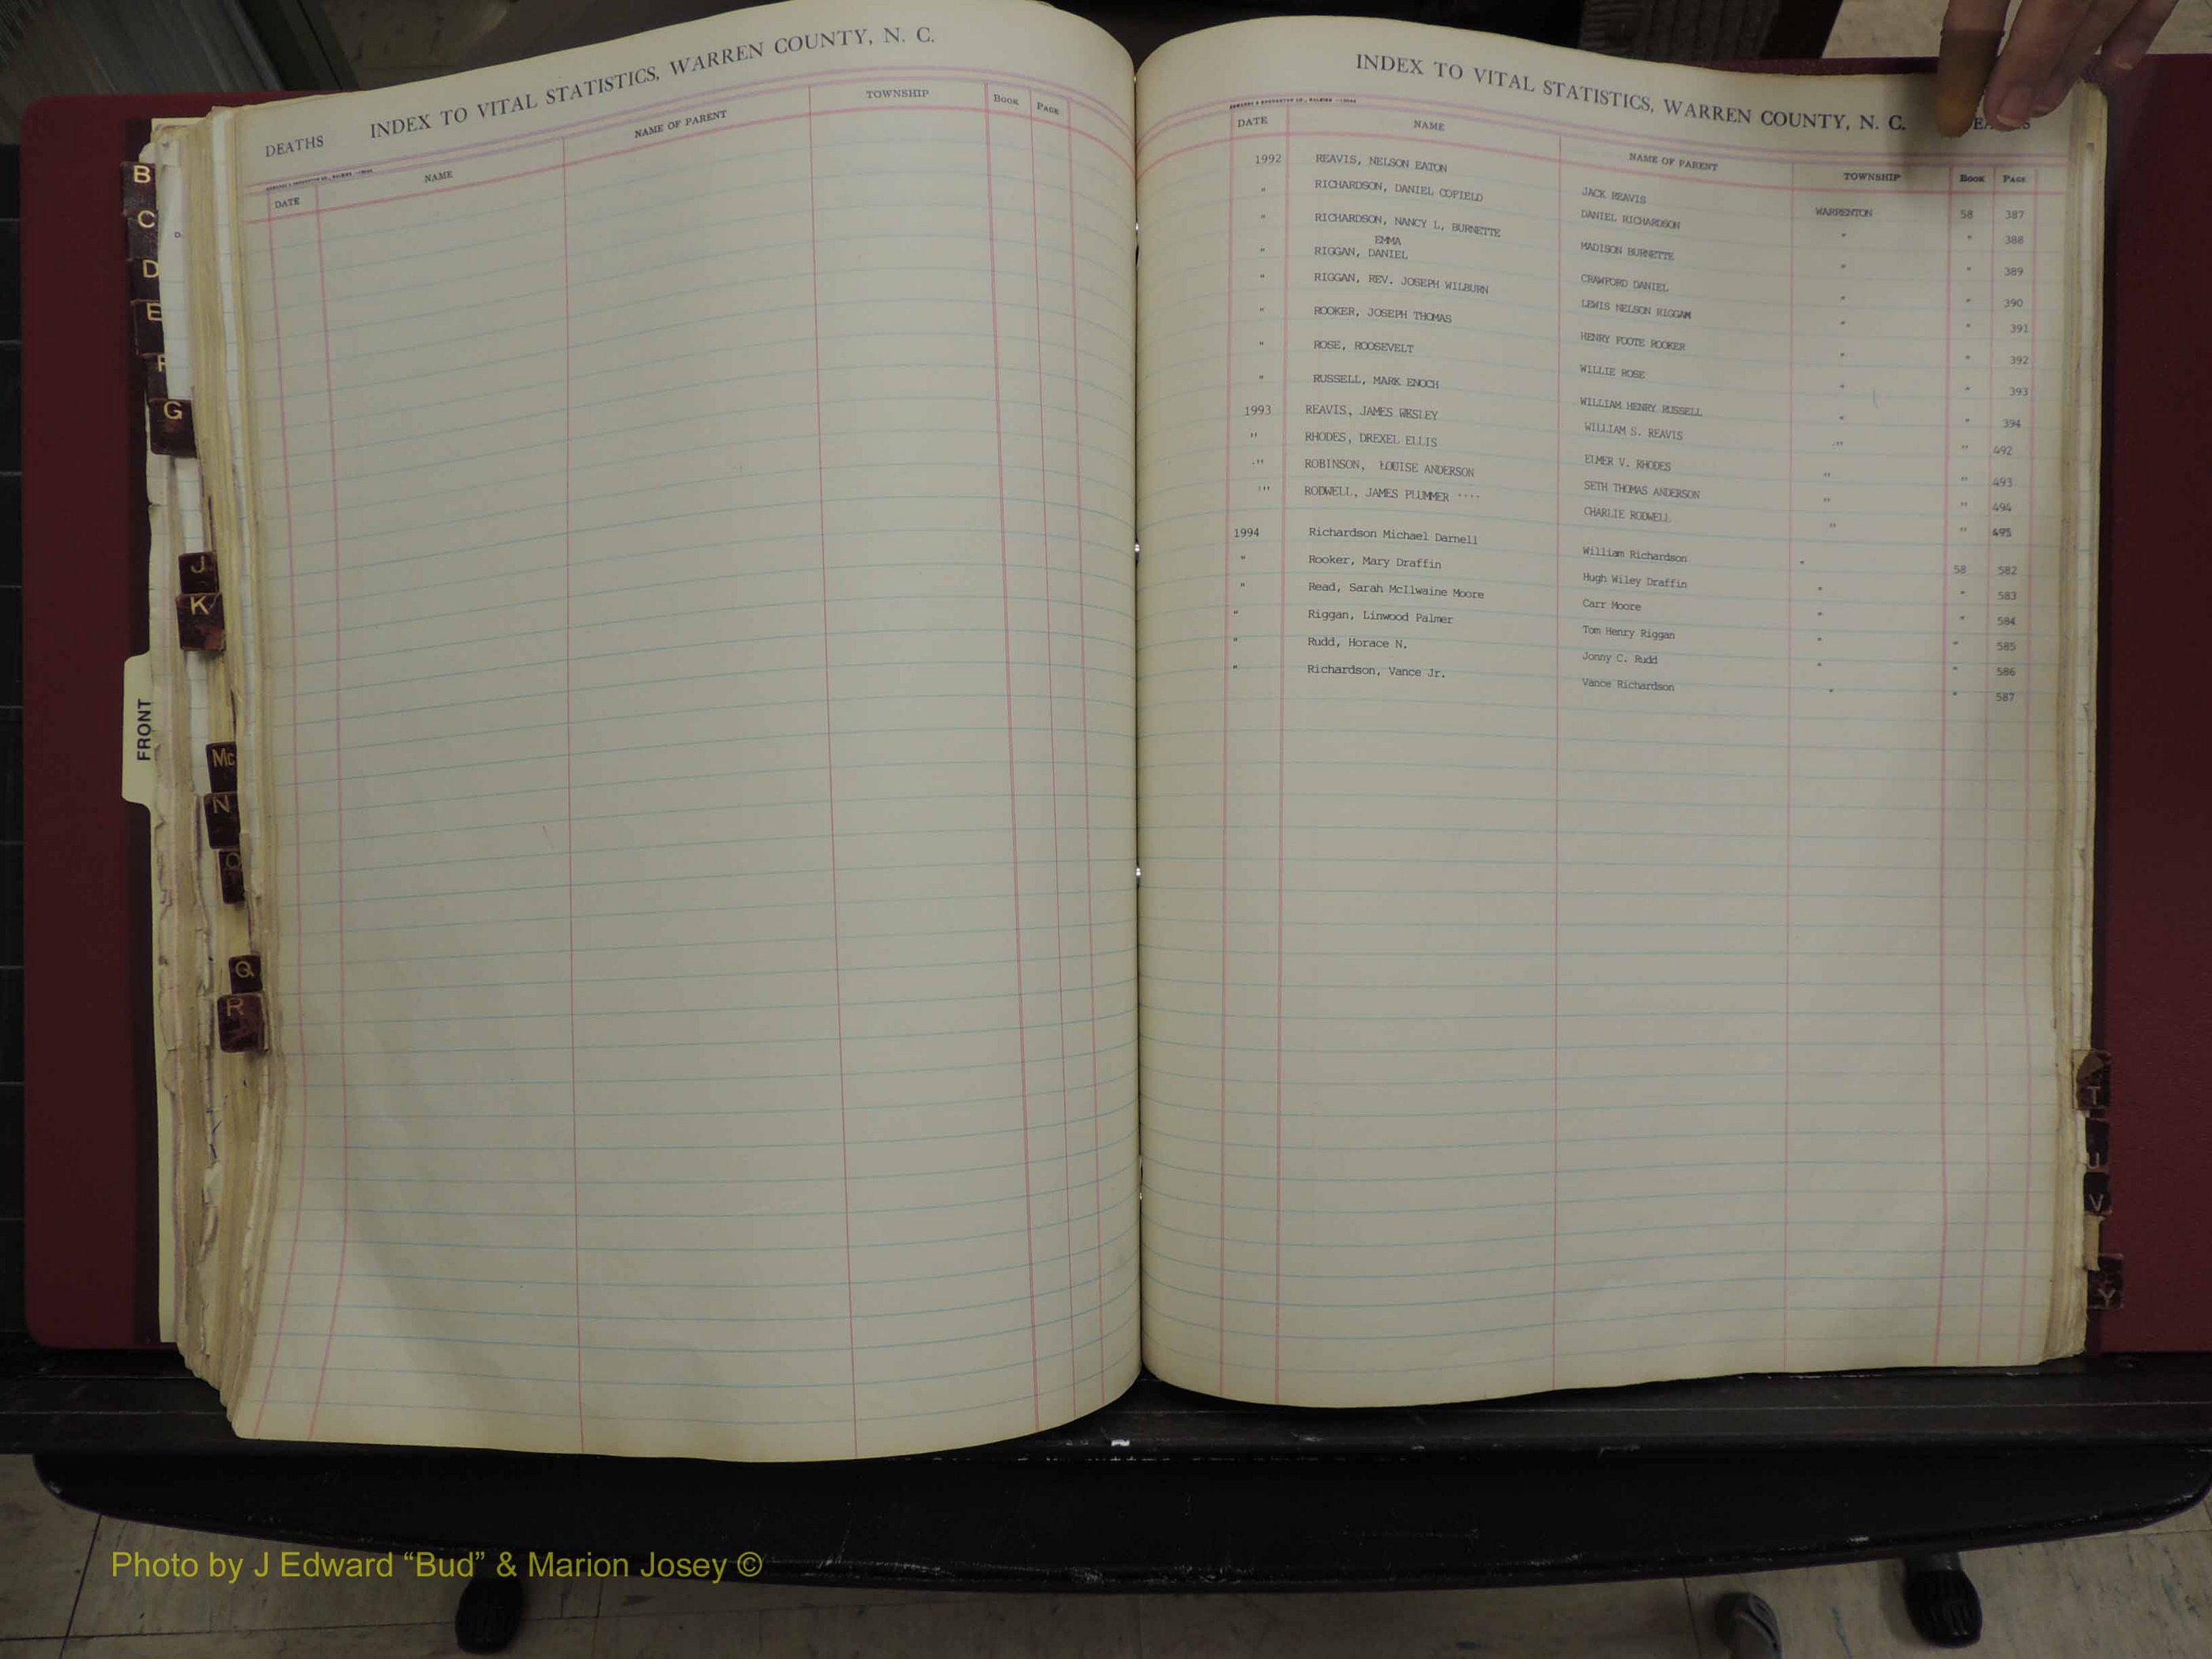 DEATHS INDEX TO VITAL STATISTICS, WARREN COUNTY, N. C.
DATE NAME NAME OF PARENT TOWNSHIP BOOK PAGE
B
C
D
E
F
G
J
K
FRONT
Mc
N
O
Q
R
INDEX TO VITAL STATISTICS, WARREN COUNTY, N. C.
DATE NAME NAME OF PARENT TOWNSHIP BOOK PAGE
1992 REAVIS, NELSON EATON JACK REAVIS WARRENTON 58 387
" RICHARDSON, DANIEL COFIELD DANIEL RICHARDSON " " 388
" RICHARDSON, NANCY L, BURNETTE MADISON BURNETTE " " 389
EMMA
" RIGGAN, DANIEL CRAWFORD DANIEL " " 390
" RIGGAN, REV. JOSEPH WILBURN LEWIS NELSON RIGGAN " " 391
" ROOKER, JOSEPH THOMAS HENRY FOOTE ROOKER " " 392
" ROSE, ROOSEVELT WILLIE ROSE " " 393
" RUSSELL, MARK ENOCH WILLIAM HENRY RUSSELL " " 394
1993 REAVIS, JAMES WESLEY WILLIAM S. REAVIS " " 492
" RHODES, DREXEL ELLIS ELMER V. RHODES " " 493
" ROBINSON, LOUISE ANDERSON SETH THOMAS ANDERSON " " 494
" RODWELL, JAMES PLUMMER .... CHARLIE RODWELL " " 495
1994 Richardson Michael Darnell William Richardson " 58 582
" Rooker, Mary Draffin Hugh Wiley Draffin " " 583
" Read, Sarah McIlwaine Moore Carr Moore " " 584
" Riggan, Linwood Palmer Tom Henry Riggan " " 585
" Rudd, Horace N. Jonny C. Rudd " " 586
" Richardson, Vance Jr. Vance Richardson " " 587
T
U
V
Y
Photo by J Edward “Bud” & Marion Josey ©